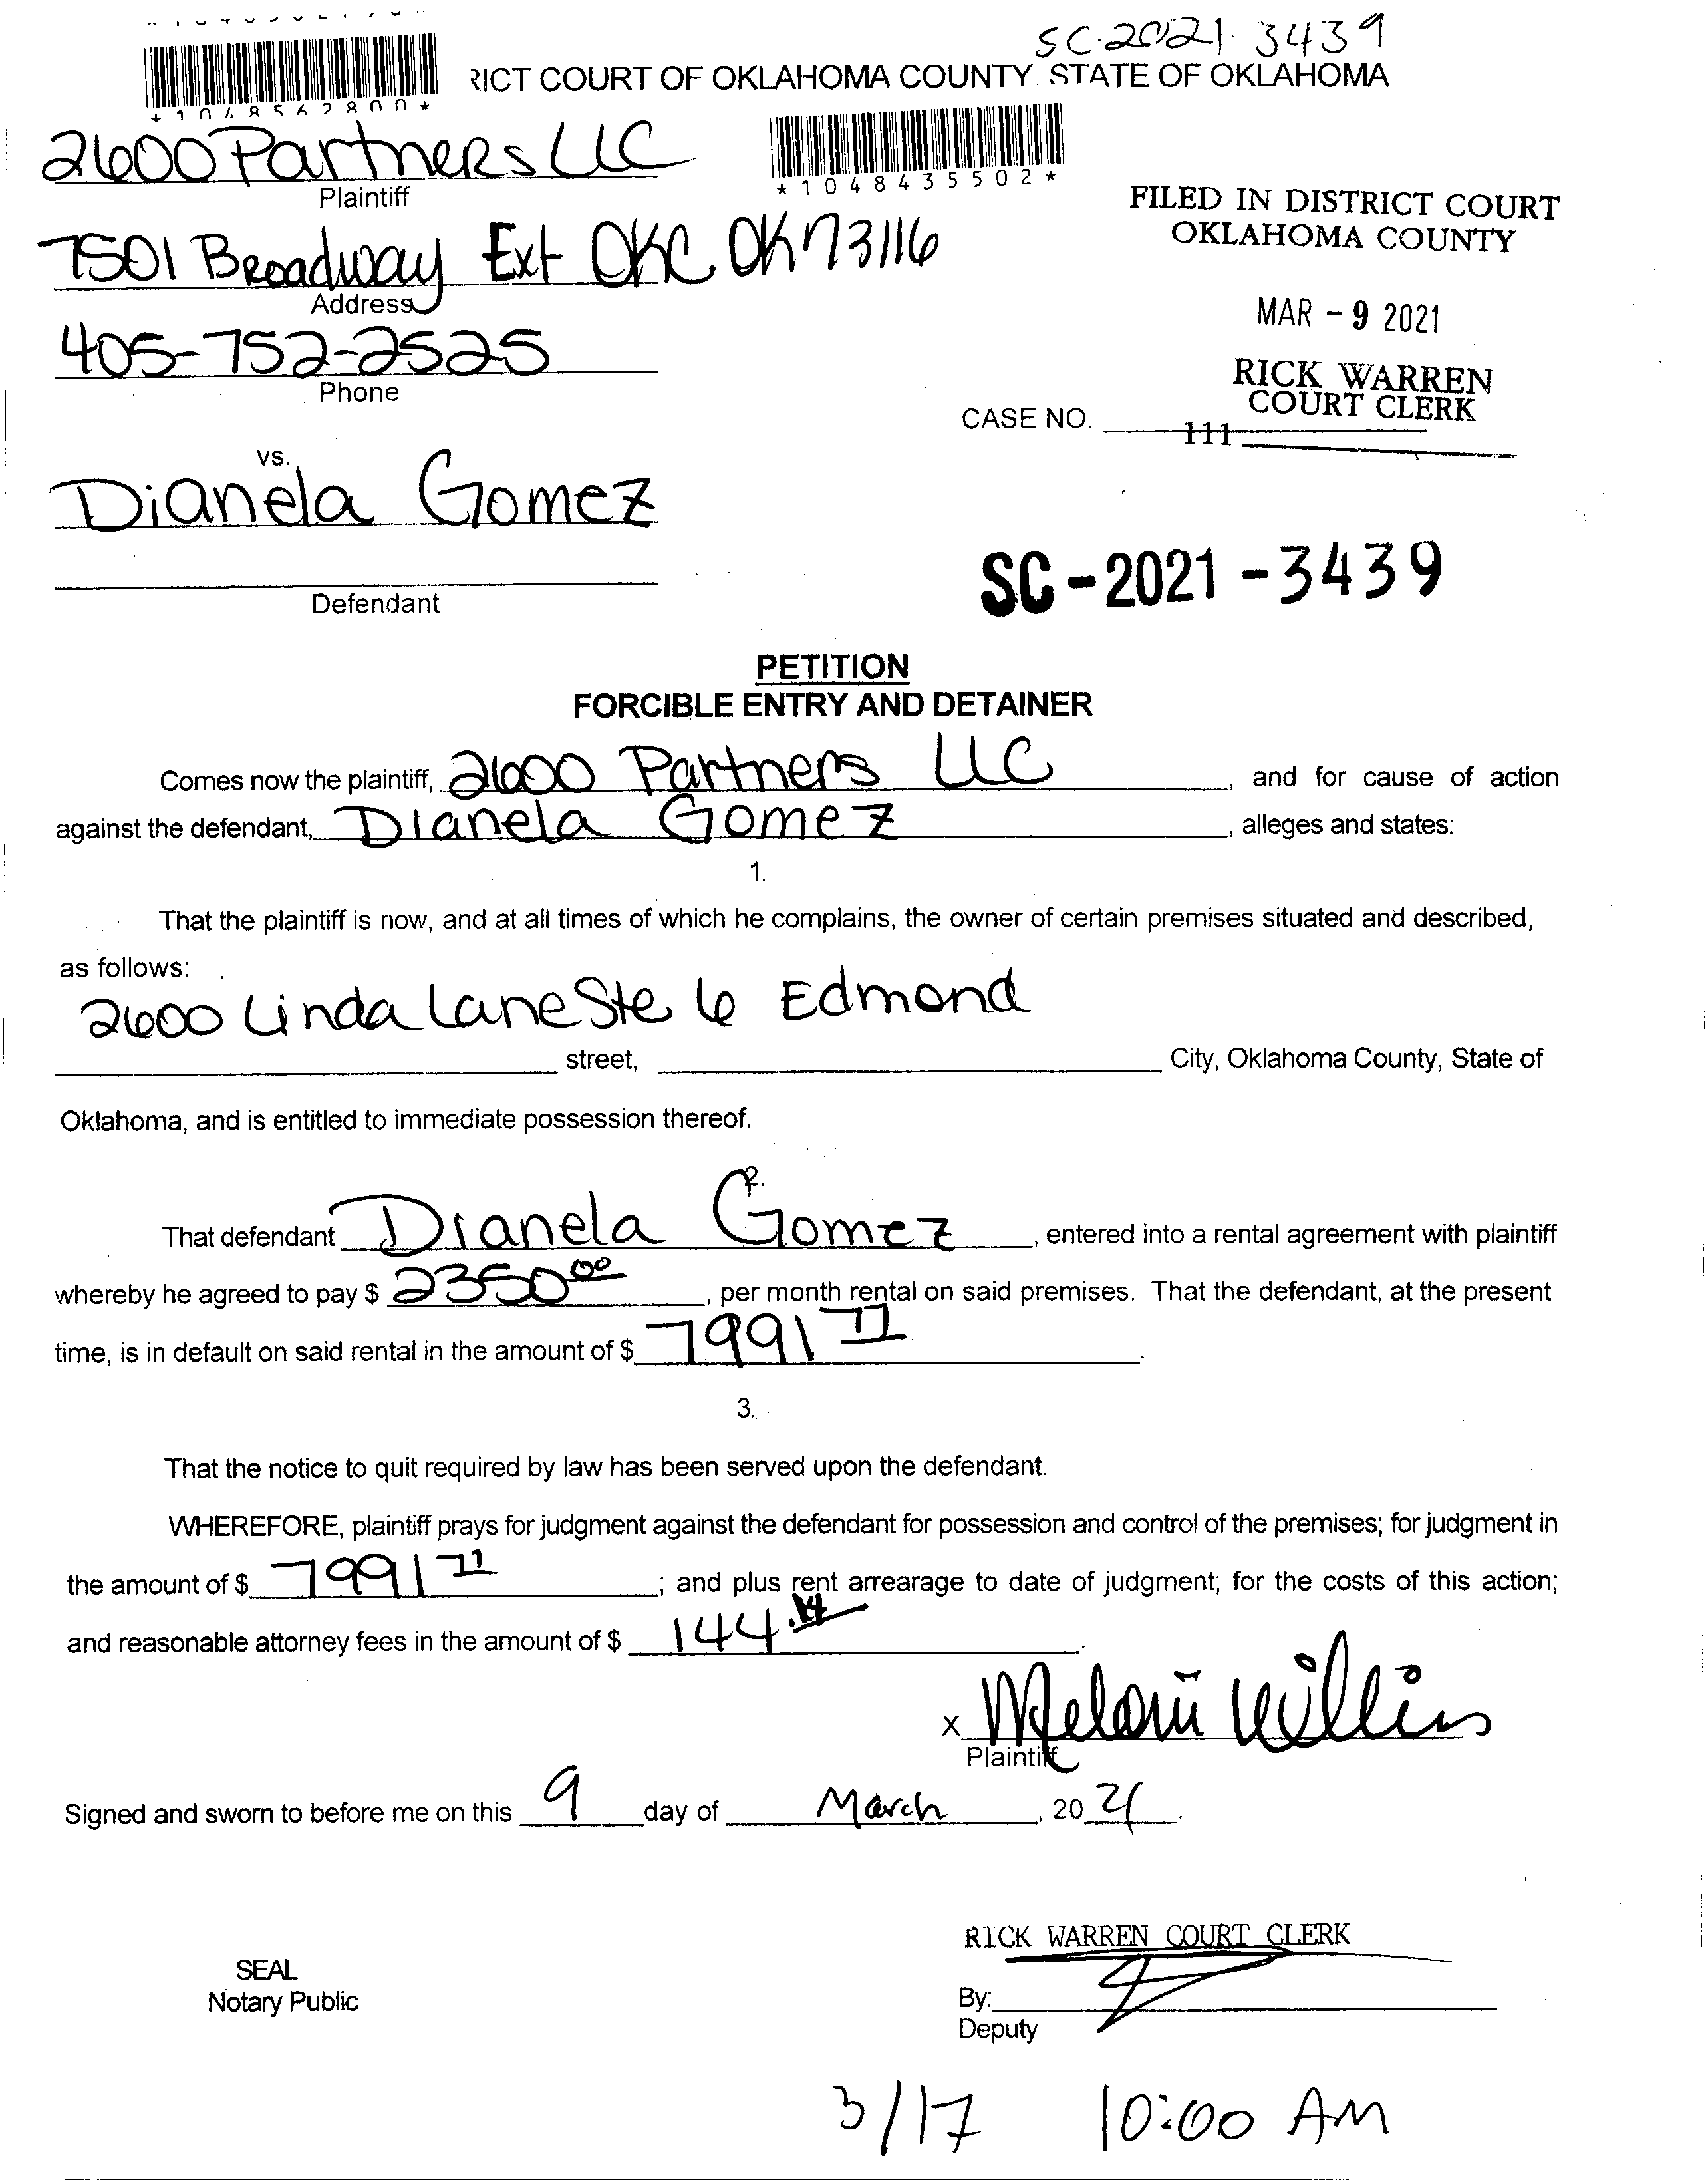 SC-2021-3439
RICT COURT OF OKLAHOMA COUNTY STATE OF OKLAHOMA
*1048562800*
2600 Partners LLC
Plaintiff
*1048435502*
FILED IN DISTRICT COURT
OKLAHOMA COUNTY
7501 Broadway Ext OKC OK 73116
Address
MAR - 9 2021
405-752-2525
Phone
RICK WARREN
COURT CLERK
CASE NO.
111
vs.
Dianela Gomez
Defendant
SC - 2021 - 3439
PETITION
FORCIBLE ENTRY AND DETAINER
Comes now the plaintiff, 2600 Partners LLC, and for cause of action
against the defendant, Dianela Gomez, alleges and states:
1.
That the plaintiff is now, and at all times of which he complains, the owner of certain premises situated and described,
as follows:
2600 Linda Lane Ste 6 Edmond
street, City, Oklahoma County, State of
Oklahoma, and is entitled to immediate possession thereof.
2.
That defendant Dianela Gomez, entered into a rental agreement with plaintiff
whereby he agreed to pay $ 2350 00, per month rental on said premises. That the defendant, at the present
time, is in default on said rental in the amount of $ 7991 71.
3.
That the notice to quit required by law has been served upon the defendant.
WHEREFORE, plaintiff prays for judgment against the defendant for possession and control of the premises; for judgment in
the amount of $ 7991 71; and plus rent arrearage to date of judgment; for the costs of this action;
and reasonable attorney fees in the amount of $ 144.14.
x
Plaintiff
Signed and sworn to before me on this 9 day of March, 20 21.
RICK WARREN COURT CLERK
SEAL
Notary Public
By:
Deputy
3/17 10:00 AM